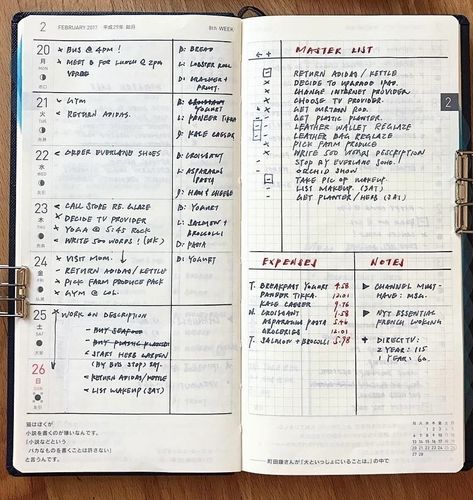 2 FEBRUARY 2017 平成29年 如月 8th WEEK
20 × BUS @ 4PM! B: BREAD
月
MON × MEET B FOR LUNCH @ 2PM L: LOBSTER ROLL
D: CRACKER & FRUIT.
21 < GYM B: YOGURT
火
TUE < RETURN ADIDAS. L: PANEER TIKKA
D: KALE CAESAR
22 < ORDER EVERLANE SHOES B: CROISSANT
水
WED L: ASPARAGUS (PASTA)
D: HAM & CHEESE
23 × CALL STORE RE. GLAZE B: YOGURT
木
THU × DECIDE TV PROVIDER L: SALMON + BROCCOLI
× YOGA @ 5:45 ROCK
× WRITE 500 WORDS! D: PASTA
24 × VISIT MOM. B: YOGURT
金
FRI - RETURN ADIDAS/KETTLE
× PICK FARM PRODUCE PACK
× GYM @ LOL.
25 × WORK ON DESCRIPTION
土
SAT - BUY SEAFOOD
- BUY PLASTIC PLANTER
26 - START HERB GARDEN
日
SUN (BY BUS STOP) SAT.
< RETURN ADIDAS/KETTLE
< LIST MAKEUP (SAT)
猫はぼくが
小説を書くのが嫌いなんです。
「小説などという
バカなものを書くことは許さない」
と言うんです。
← + MASTER LIST
RETURN ADIDAS / KETTLE
× DECIDE TO UPGRADE IPAD.
× CHANGE INTERNET PROVIDER
× CHOOSE TV PROVIDER.
× GET CURTAIN ROD.
GET PLASTIC PLANTER.
LEATHER WALLET REGLAZE
LEATHER BAG REGLAZE
× PICK FARM PRODUCE
× WRITE 500 WORDS DESCRIPTION
STOP BY EVERLANE SOHO.
ORCHID SHOW
TAKE PIC OF MAKEUP.
LIST MAKEUP. (SAT)
GET PLANTER/HERB (SAT)
2
EXPENSES
T. BREAKFAST YOGURT 4.58
PANEER TIKKA. 12.01
KALE CAESAR 9.76
W. CROISSANT 1.58
ASPARAGUS PASTA 5.46
GROCERIES 12.01
T. SALMON + BROCOLLI 5.98
NOTES
▶ CHANNEL MUST-HAVE: MSG.
▶ NYT ESSENTIAL FRENCH COOKING
+ DIRECTV:
2 YEAR: 115
1 YEAR: 60.
町田康さんが「犬といっしょにいることは。」の中で